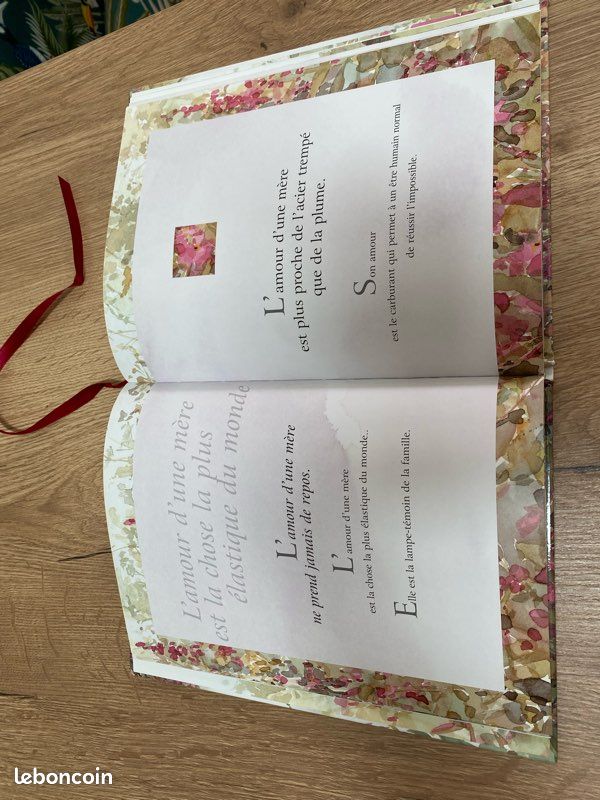 L'amour d'une mère
est la chose la plus
élastique du monde
L'amour d'une mère
ne prend jamais de repos.
L'amour d'une mère
est la chose la plus élastique du monde..
Elle est la lampe-témoin de la famille.
L'amour d'une mère
est plus proche de l'acier trempé
que de la plume.
Son amour
est le carburant qui permet à un être humain normal
de réussir l'impossible.
leboncoin